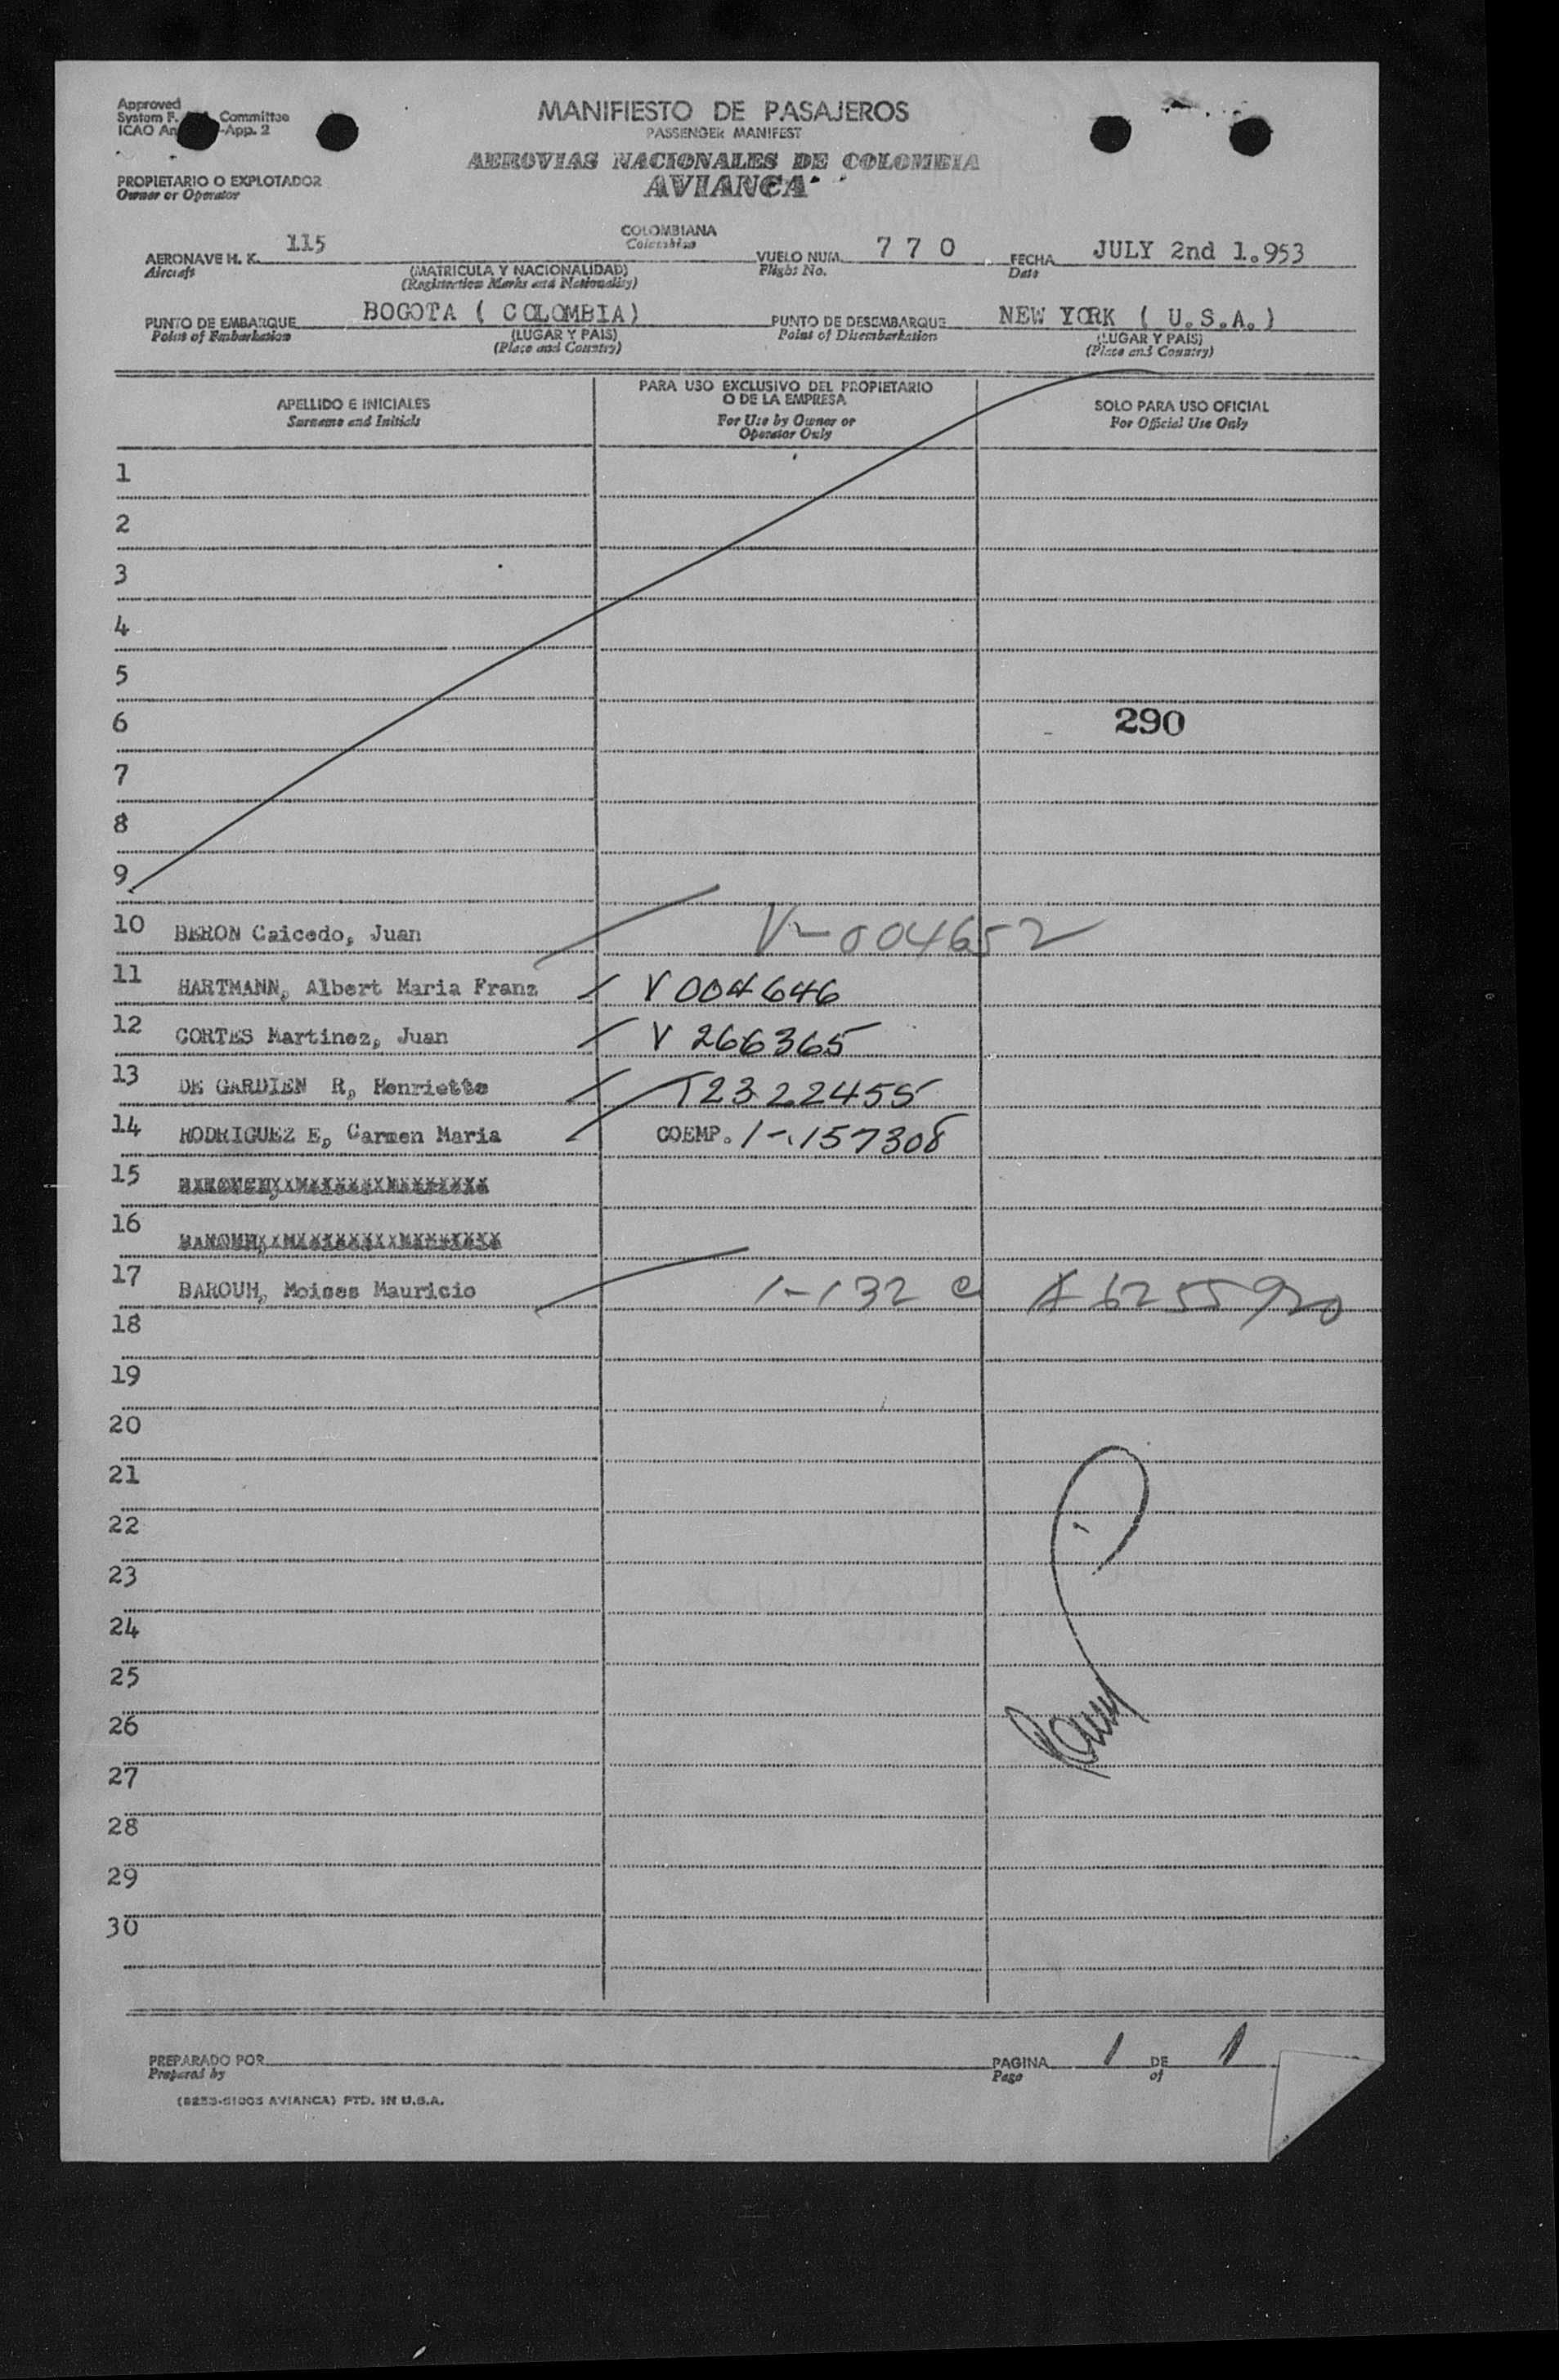 Approved
System F. Committee
ICAO An -App. 2
MANIFIESTO DE PASAJEROS
PASSENGER MANIFEST
AEROVIAS NACIONALES DE COLOMBIA
AVIANCA
PROPIETARIO O EXPLOTADOR
Owner or Operator
AERONAVE H. K. 115 COLOMBIANA VUELO NUM. 7 7 0 FECHA JULY 2nd 1.953
Aircraft Colombian Flight No. Date
(MATRICULA Y NACIONALIDAD)
(Registration Marks and Nationality)
PUNTO DE EMBARQUE BOGOTA ( COLOMBIA) PUNTO DE DESEMBARQUE NEW YORK ( U.S.A.)
Point of Embarkation (LUGAR Y PAIS) Point of Disembarkation (LUGAR Y PAIS)
(Place and Country) (Place and Country)
APELLIDO E INICIALES
Surname and Initials
PARA USO EXCLUSIVO DEL PROPIETARIO
O DE LA EMPRESA
For Use by Owner or
Operator Only
SOLO PARA USO OFICIAL
For Official Use Only
1
2
3
4
5
6 290
7
8
9
10 BERON Caicedo, Juan V-004652
11 HARTMANN, Albert Maria Franz V 004646
12 CORTES Martinez, Juan V 266365
13 DE GARDIEN R, Henriette T2322455
14 RODRIGUEZ E, Carmen Maria COEMP. 1-157308
15
16
17 BAROUH, Moises Mauricio 1-132 C A 6255920
18
19
20
21
22
23
24
25
26
27
28
29
30
PREPARADO POR PAGINA 1 DE 1
Prepared by Page of
(8253-S1003 AVIANCA) PTD. IN U.S.A.